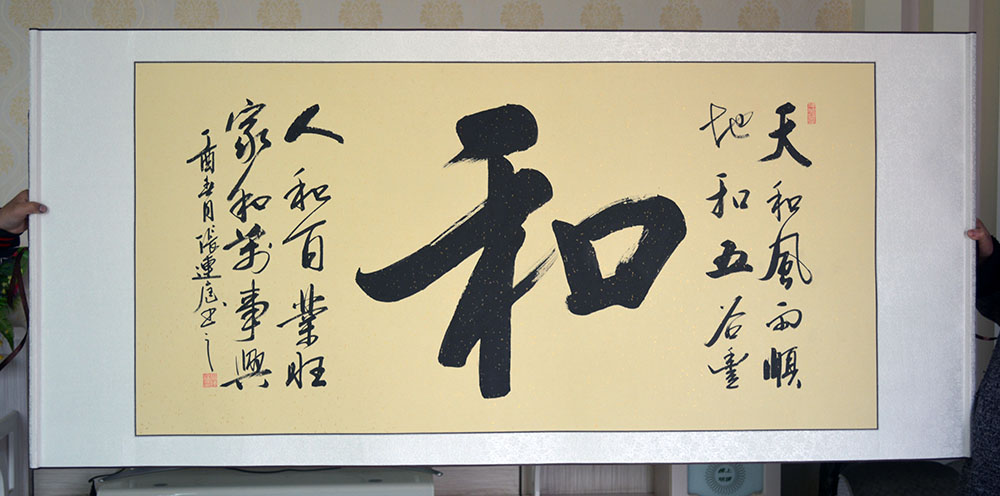 天和風雨順
地和五谷豐
和
人和百業旺
家和萬事興
丁酉春月張連庭書